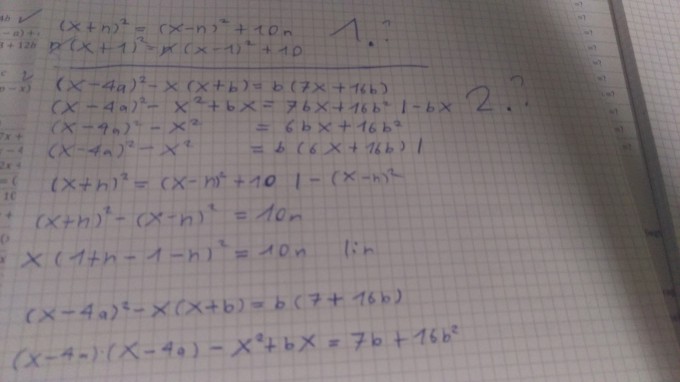 (x+n)² = (x-n)² + 10n 1.?
n(x+1)² = n(x-1)² + 10
(x-4a)² - x(x+b) = b(7x+16b)
(x-4a)² - x² + bx = 7bx + 16b² | -bx 2.?
(x-4a)² - x² = 6bx + 16b²
(x-4a)² - x² = b(6x+16b) |
(x+n)² = (x-n)² + 10 | - (x-n)²
(x+n)² - (x-n)² = 10n
x(1+n-1-n)² = 10n | in
(x-4a)² - x(x+b) = b(7+16b)
(x-4a)·(x-4a) - x² + bx = 7b + 16b²